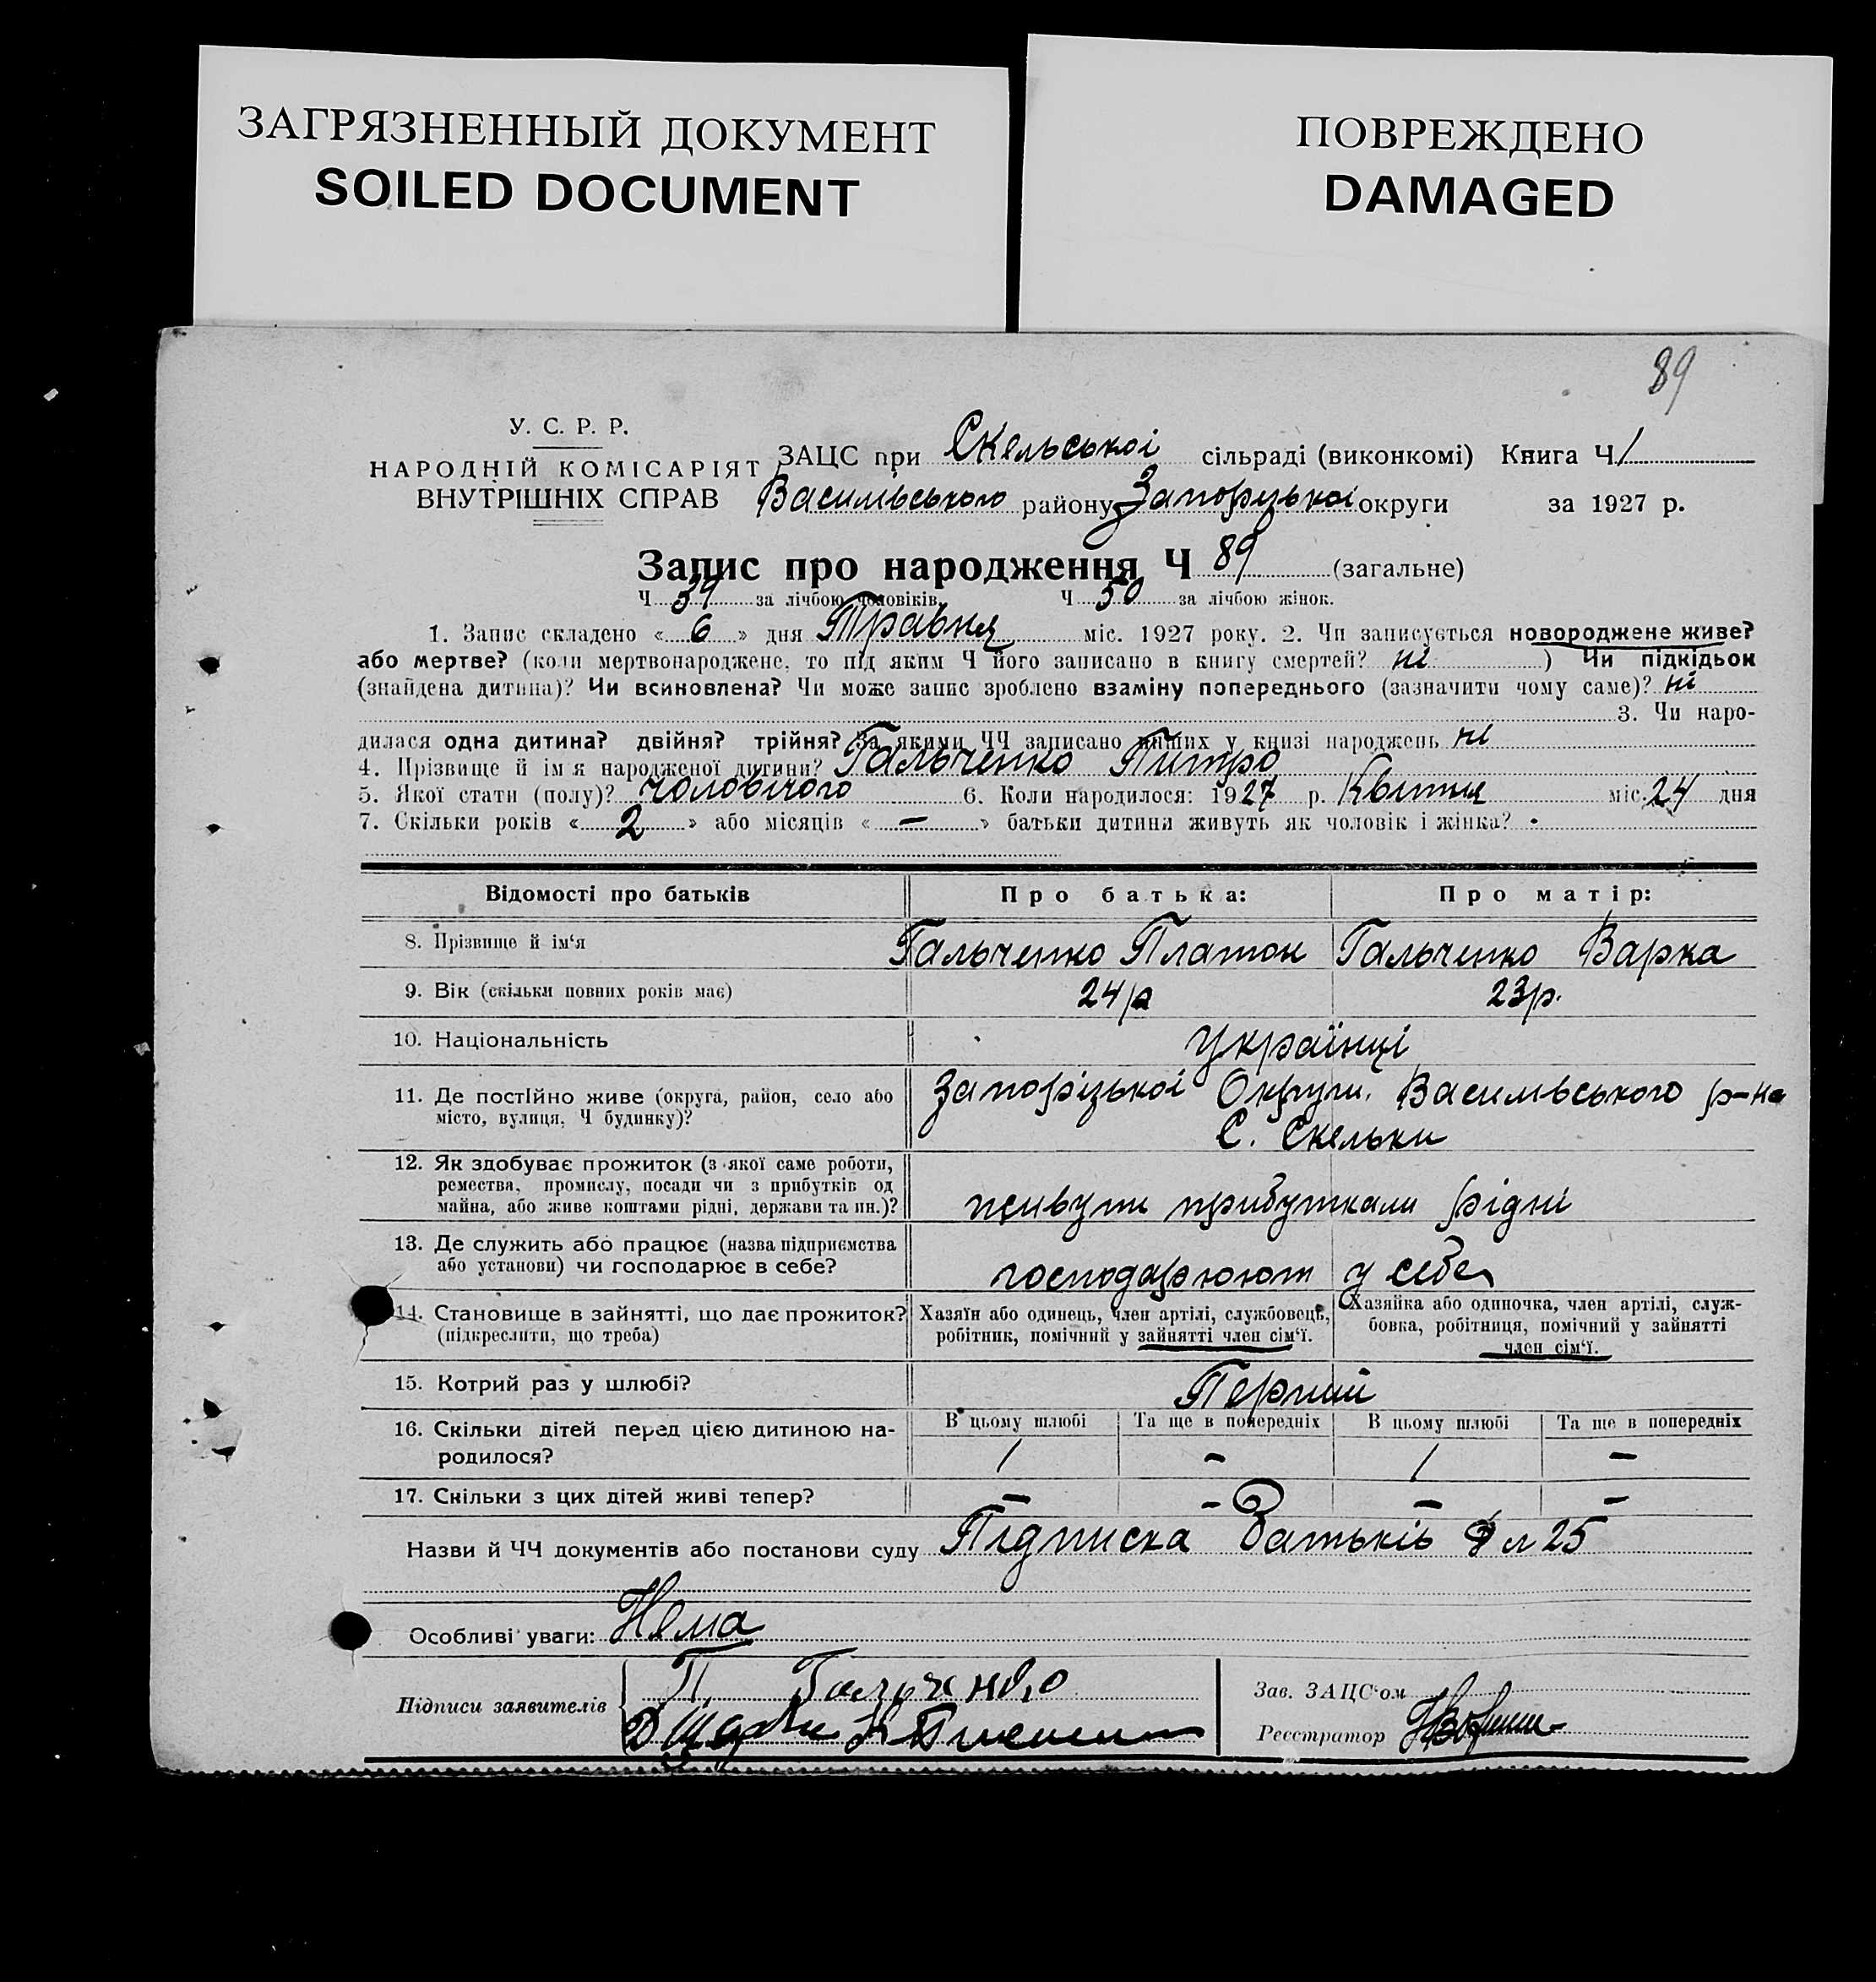 ЗАГРЯЗНЕННЫЙ ДОКУМЕНТ
SOILED DOCUMENT
ПОВРЕЖДЕНО
DAMAGED
89
У. С. Р. Р.
НАРОДНІЙ КОМІСАРІЯТ
ВНУТРІШНІХ СПРАВ
ЗАЦС при Скельської сільраді (виконкомі) Книга Ч 1
Василівського району Запорізької округи за 1927 р.
Запис про народження Ч 89 (загальне)
Ч 39 за лічбою чоловіків. Ч 50 за лічбою жінок.
1. Запис складено « 6 » дня Травня міс. 1927 року. 2. Чи записується новороджене живе?
або мертве? (коли мертвонароджене, то під яким Ч його записано в книгу смертей? ні ) Чи підкідьок
(знайдена дитина)? Чи всиновлена? Чи може запис зроблено взаміну попереднього (зазначити чому саме)? ні
3. Чи наро-
дилася одна дитина? двійня? трійня? За якими ЧЧ записано инших у книзі народжень ні
4. Прізвище й ім я народженої дитини? Гальченко Питро
5. Якої стати (полу)? чоловічого 6. Коли народилося: 1927 р. Квітня міс. 24 дня
7. Скільки років « 2 » або місяців « — » батьки дитини живуть як чоловік і жінка? -
Відомості про батьків Про батька: Про матір:
8. Прізвище й ім‘я Гальченко Платон Гальченко Варка
9. Вік (скільки повних років має) 24 р 23 р.
10. Національність Українці
11. Де постійно живе (округа, район, село або Запорізької Округи. Василівського р-на
місто, вулиця, Ч будинку)? С. Скельки
12. Як здобуває прожиток (з якої саме роботи,
ремества, промислу, посади чи з прибутків од
майна, або живе коштами рідні, держави та ин.)? живуть прибутками рідні
13. Де служить або працює (назва підприємства
або установи) чи господарює в себе? господарюють у себе
14. Становище в зайнятті, що дає прожиток? Хазяїн або одинець, член артілі, службовець, Хазяйка або одиночка, член артілі, служ-
(підкреслити, що треба) робітник, помічний у зайнятті член сім‘ї. бовка, робітниця, помічний у зайнятті
член сім‘ї.
15. Котрий раз у шлюбі? Перший
16. Скільки дітей перед цією дитиною на- В цьому шлюбі Та ще в попередніх В цьому шлюбі Та ще в попередніх
родилося? 1 - 1 -
17. Скільки з цих дітей живі тепер? - - - -
Назви й ЧЧ документів або постанови суду Підписка Батьків л 25
Особливі уваги: Нема
Підписи заявителів П. Гальченко
Зав. ЗАЦС‘ом
Реєстратор